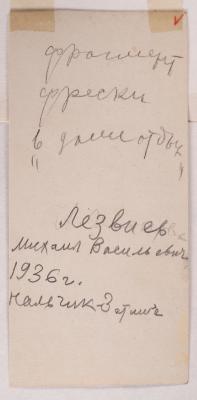 фрагмент
фрески
в доме отдых
" "
Лезвиев
Михаил Васильевич
1936 г.
Нальчик-